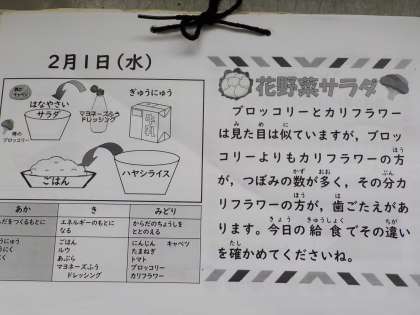 2月1日(水)
はなやさい
サラダ
マヨネーズふう
ドレッシング
ぎゅうにゅう
牛乳
ごはん
ハヤシライス
あか
き
みどり
エネルギーのもとに
なる
からだのちょうしを
ととのえる
ごはん
ルウ
あぶら
マヨネーズふう
ドレッシング
にんじん キャベツ
たまねぎ
トマト
ブロッコリー
カリフラワー
花野菜サラダ
ブロッコリーとカリフラワー
は見た目は似ていますが,ブロッ
コリーよりもカリフラワーの方
が,つぼみの数が多く,その分カ
リフラワーの方が,歯ごたえがあ
ります。今日の給食でその違い
を確かめてくださいね。